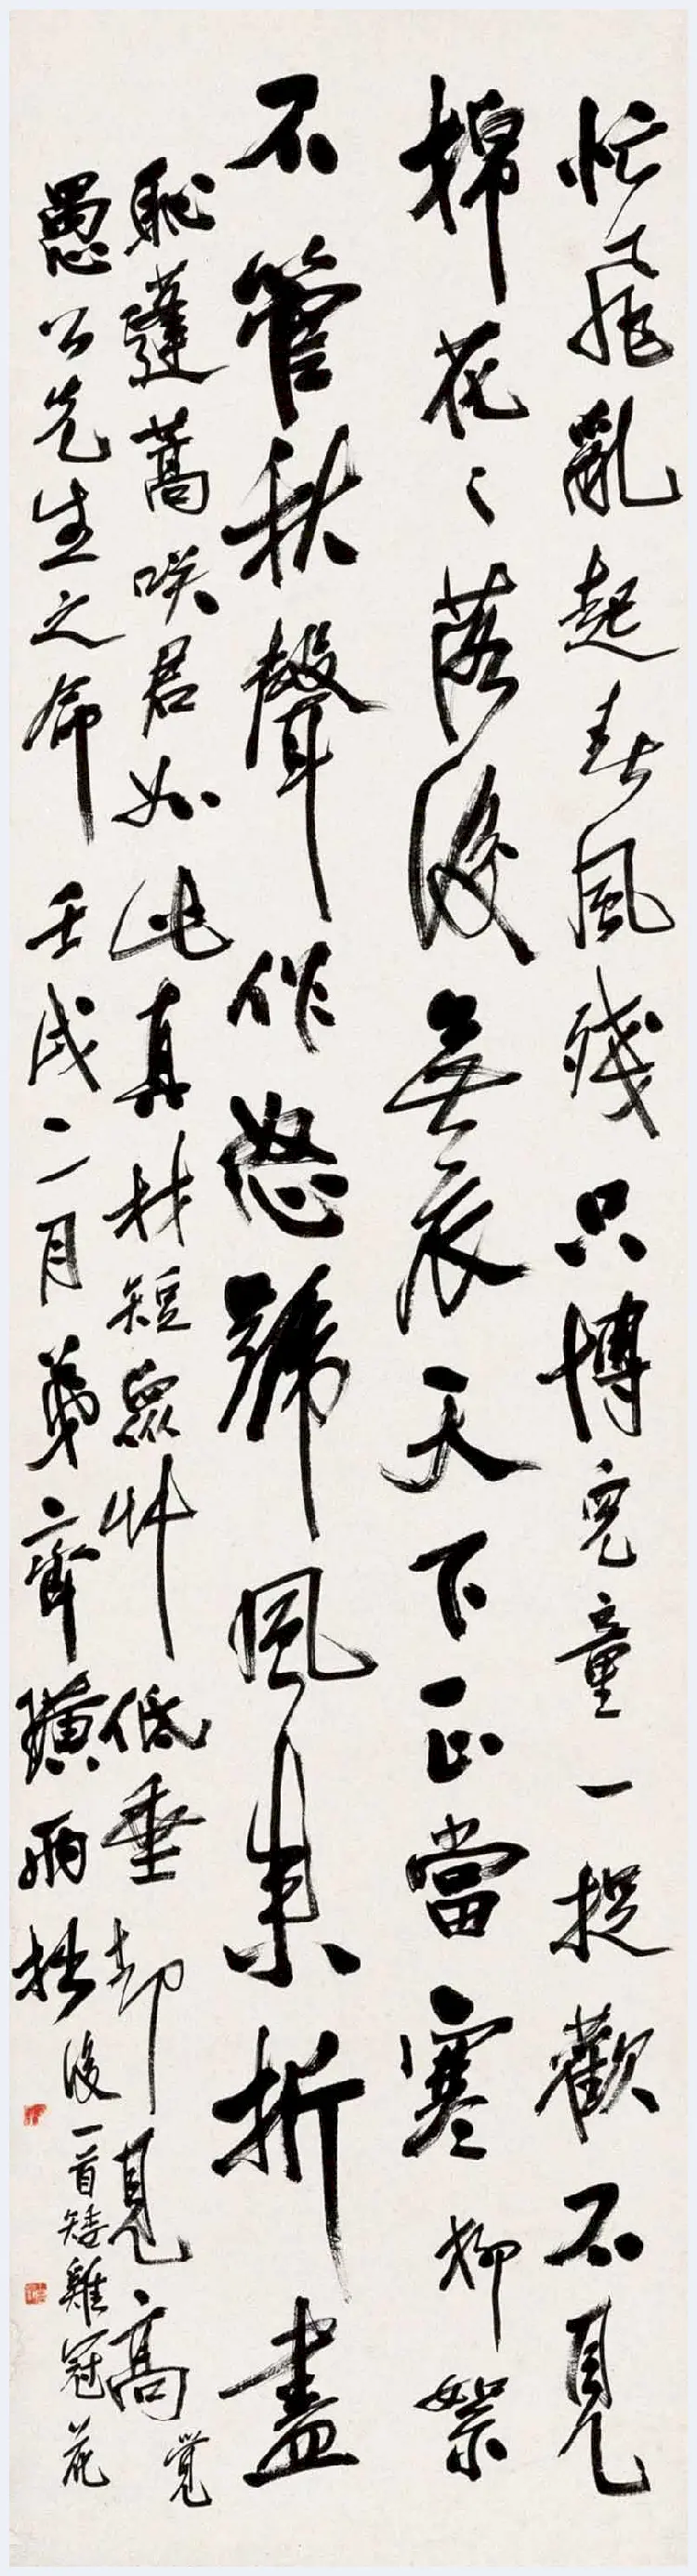 忙飛亂起春風殘只博兒童一捉歡不見
棉花〻落後無衣天下正當寒柳絮
不管秋聲作怒號風來折盡
恥蓬蒿咲君如此真材短眾草低垂却見高覺
愚公先生之命壬戌二月弟齊璜兩拙
後一首矮雞冠花